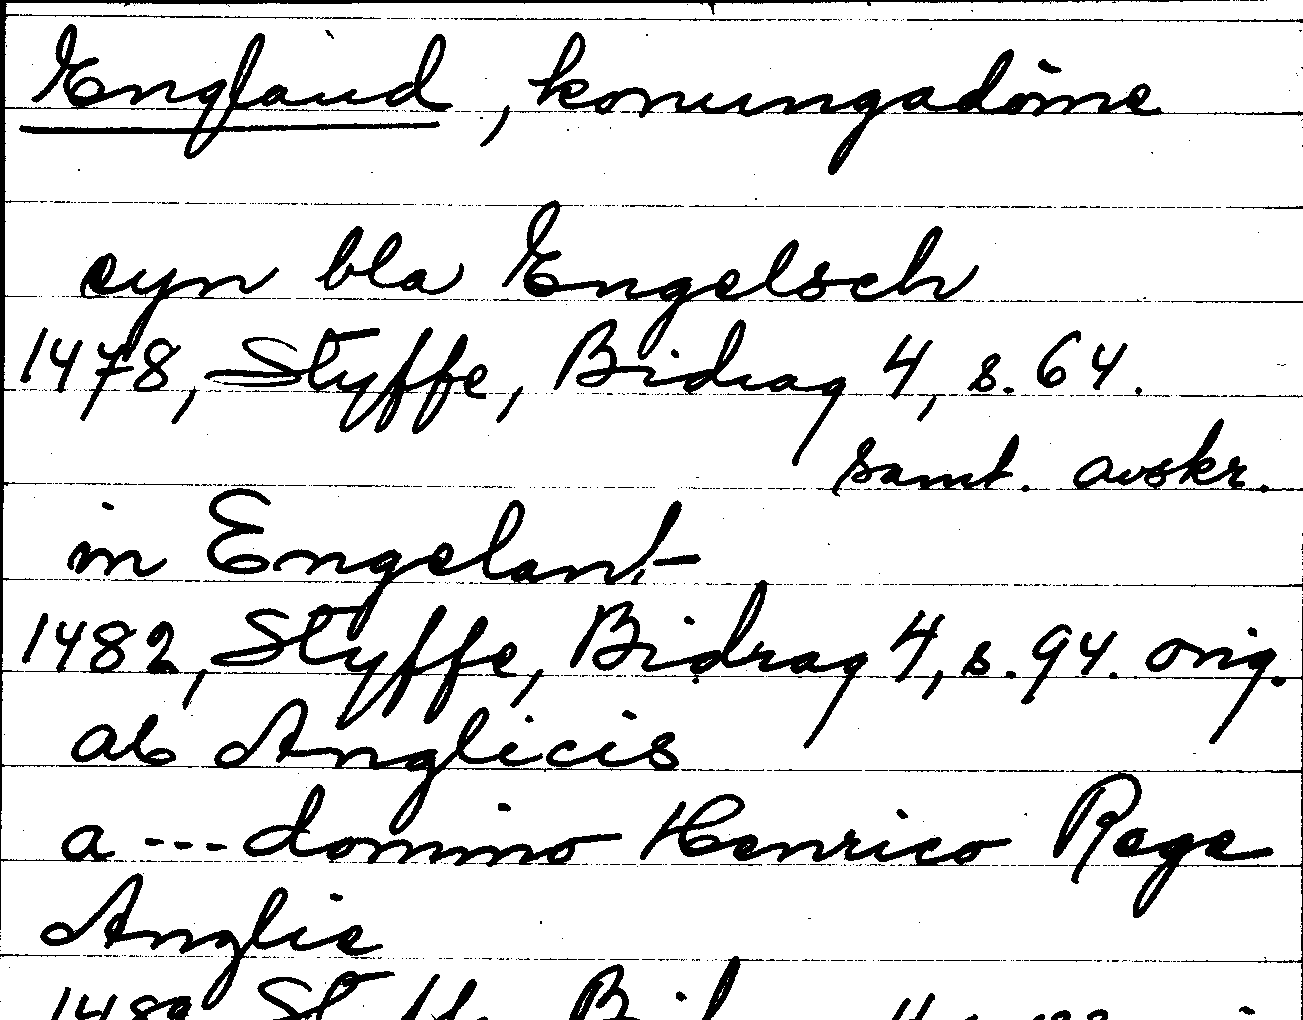 England, konungadöme
eyn bla Engelsch
1478, Styffe, Bidrag 4, s. 64.
samt. avskr.
in Engelant
1482, Styffe, Bidrag 4, s. 94. orig.
ab Anglicis
a --- domino Henrico Rege
Anglie